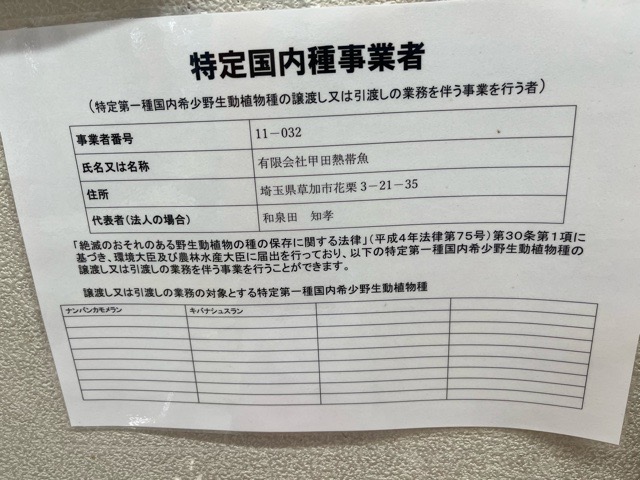 特定国内種事業者
（特定第一種国内希少野生動植物種の譲渡し又は引渡しの業務を伴う事業を行う者）
事業者番号 11－032
氏名又は名称 有限会社甲田熱帯魚
住所 埼玉県草加市花栗3－21－35
代表者（法人の場合） 和泉田 知孝
「絶滅のおそれのある野生動植物の種の保存に関する法律」（平成4年法律第75号）第30条第1項に
基づき、環境大臣及び農林水産大臣に届出を行っており、以下の特定第一種国内希少野生動植物種の
譲渡し又は引渡しの業務を伴う事業を行うことができます。
譲渡し又は引渡しの業務の対象とする特定第一種国内希少野生動植物種
ナンバンカモメラン キバナシュスラン